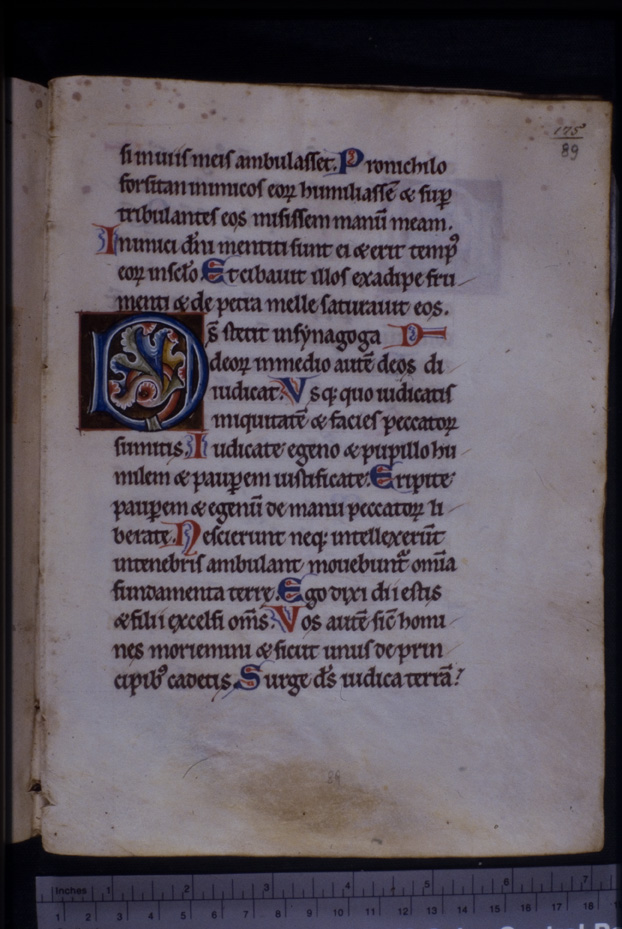 175
89
si in uiis meis ambulasset. Pro nichilo
forsitan inimicos eoꝝ humiliassē & sup̄
tribulantes eos misissem manū meam.
Inimici dn̄i mentiti sunt ei & erit temp᷒
eoꝝ in sc̄lo. Et cibauit illos ex adipe fru
menti & de petra melle saturauit eos.
Ds̄ stetit in synagoga
deoꝝ in medio autē deos di
iudicat. Vsq; quo iudicatis
iniquitatē & facies peccatoꝝ
sumitis. Iudicate egeno & pupillo hu
milem & paup̄em iustificate. Eripite
paup̄em & egenū de manu peccatoꝝ li
berate. Nescierunt neq; intellexerūt
in tenebris ambulant mouebunt᷑ om̄ia
fundamenta terrę. Ego dixi dii estis
& filii excelsi om̄s. Vos autē sic̄ homi
nes moriemini & sicut unus de prin
cipib᷒ cadetis. Surge ds̄ iudica terrā!
89
Inches 1 2 3 4 5 6 7
1 2 3 4 5 6 7 8 9 10 11 12 13 14 15 16 17 18